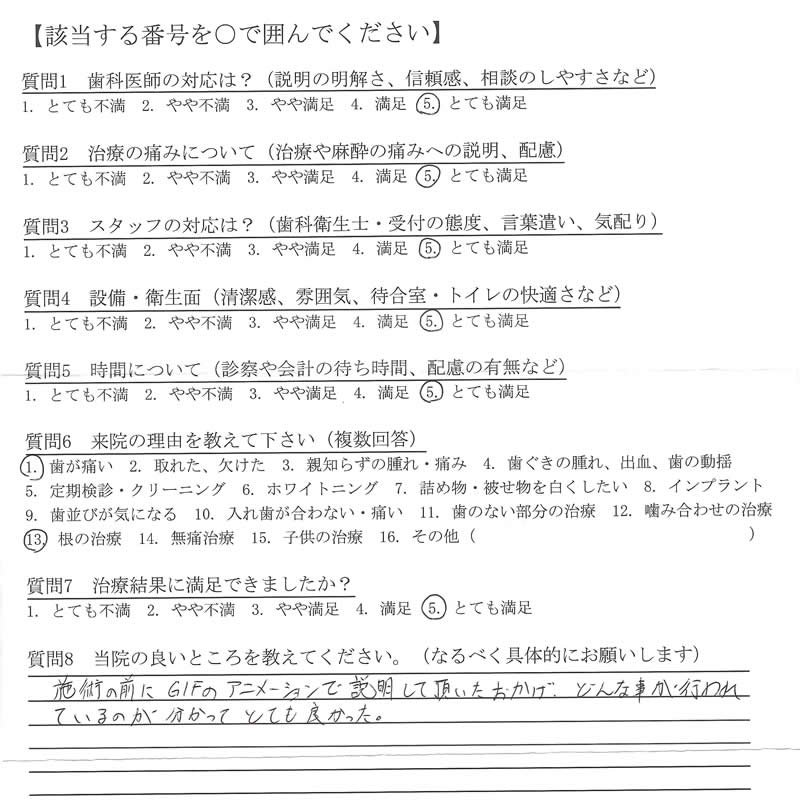 【該当する番号を○で囲んでください】
質問1 歯科医師の対応は？（説明の明解さ、信頼感、相談のしやすさなど）
1. とても不満 2. やや不満 3. やや満足 4. 満足 5. とても満足
質問2 治療の痛みについて（治療や麻酔の痛みへの説明、配慮）
1. とても不満 2. やや不満 3. やや満足 4. 満足 5. とても満足
質問3 スタッフの対応は？（歯科衛生士・受付の態度、言葉遣い、気配り）
1. とても不満 2. やや不満 3. やや満足 4. 満足 5. とても満足
質問4 設備・衛生面（清潔感、雰囲気、待合室・トイレの快適さなど）
1. とても不満 2. やや不満 3. やや満足 4. 満足 5. とても満足
質問5 時間について（診察や会計の待ち時間、配慮の有無など）
1. とても不満 2. やや不満 3. やや満足 4. 満足 5. とても満足
質問6 来院の理由を教えて下さい（複数回答）
1. 歯が痛い 2. 取れた、欠けた 3. 親知らずの腫れ・痛み 4. 歯ぐきの腫れ、出血、歯の動揺
5. 定期検診・クリーニング 6. ホワイトニング 7. 詰め物・被せ物を白くしたい 8. インプラント
9. 歯並びが気になる 10. 入れ歯が合わない・痛い 11. 歯のない部分の治療 12. 噛み合わせの治療
13. 根の治療 14. 無痛治療 15. 子供の治療 16. その他（ ）
質問7 治療結果に満足できましたか？
1. とても不満 2. やや不満 3. やや満足 4. 満足 5. とても満足
質問8 当院の良いところを教えてください。（なるべく具体的にお願いします）
施術の前にGIFのアニメーションで説明して頂いたおかげ、どんな事が行われ
ているのが分かってとても良かった。